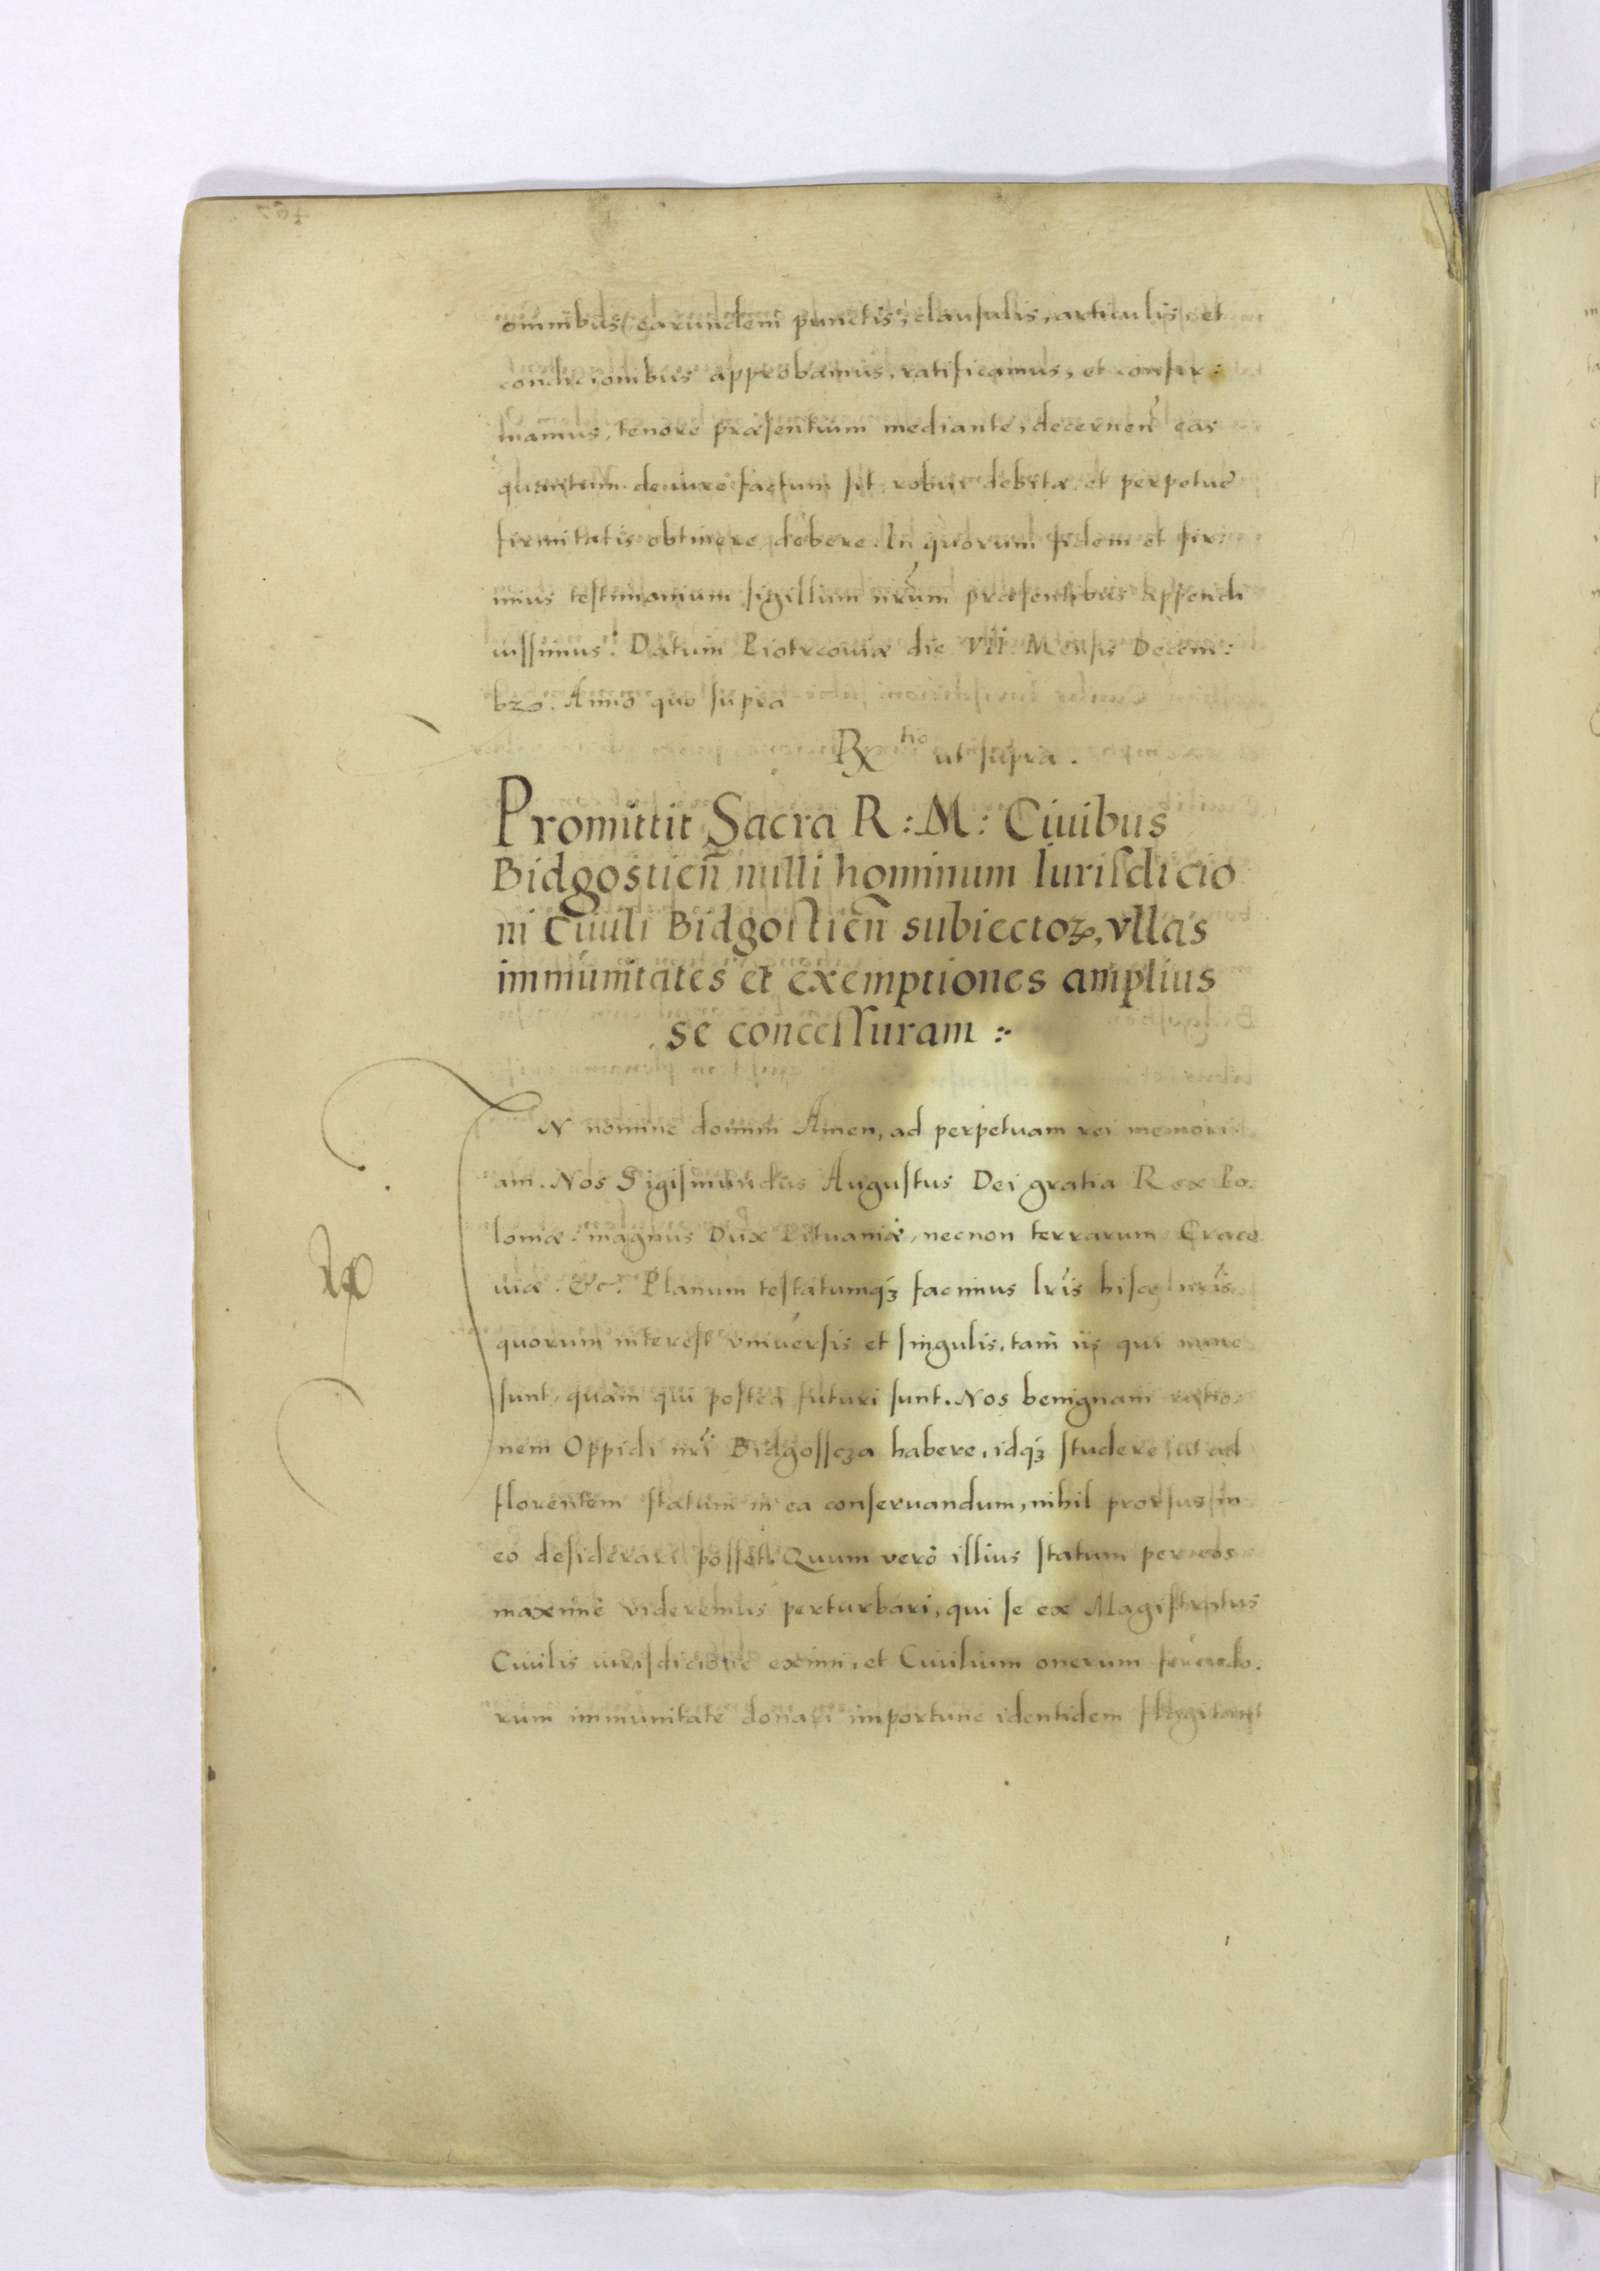 omnibus earundem punctis, clausulis, articulis, et
condicionibus approbamus, ratificamus, et confir:
mamus, tenore præsentium mediante, decernen̄ eas
quantum de iure factum sit, robur debitæ et perpetuæ
firmitatis obtinere debere. In quorum fidem et fir
mius testimonium sigillum nr̄um præsentibus appendi
iussimus. Datum Piotrcoviæ die VII Mensis Decem:
bꝛ. Anno quo supra
Rx tio ut supra.
Promittit Sacra R: M: Ciuibus
Bidgostien̄ nulli hominum Iurisdicio
ni Ciuili Bidgostien̄ subiectoꝝ, vllas
immunitates et exemptiones amplius
se concessuram :
IN nomine domini Amen, ad perpetuam rei memori
am. Nos Sigismundus Augustus Dei gratia Rex Po.
loniæ. magnus Dux Lituaniæ, necnon terrarum Craco
uiæ. &c. Planum testatumqꝫ facimus lr̄is hisce nr̄is
quorum interest vniuersis et singulis, tam iis qui nunc
sunt, quàm qui postea futuri sunt. Nos benignam ratio
nem Oppidi nr̄i Bidgosscza habere, idqꝫ studere ut ad
florentem statum in ea conseruandum, nihil prorsus in
eo desiderari posset. Quum verò illius statum per eos
maximè videremus perturbari, qui se ex Magistratus
Ciuilis iurisdicione eximi, et Ciuilium onerum ferendo.
rum immunitate donari importune identidem flagitant